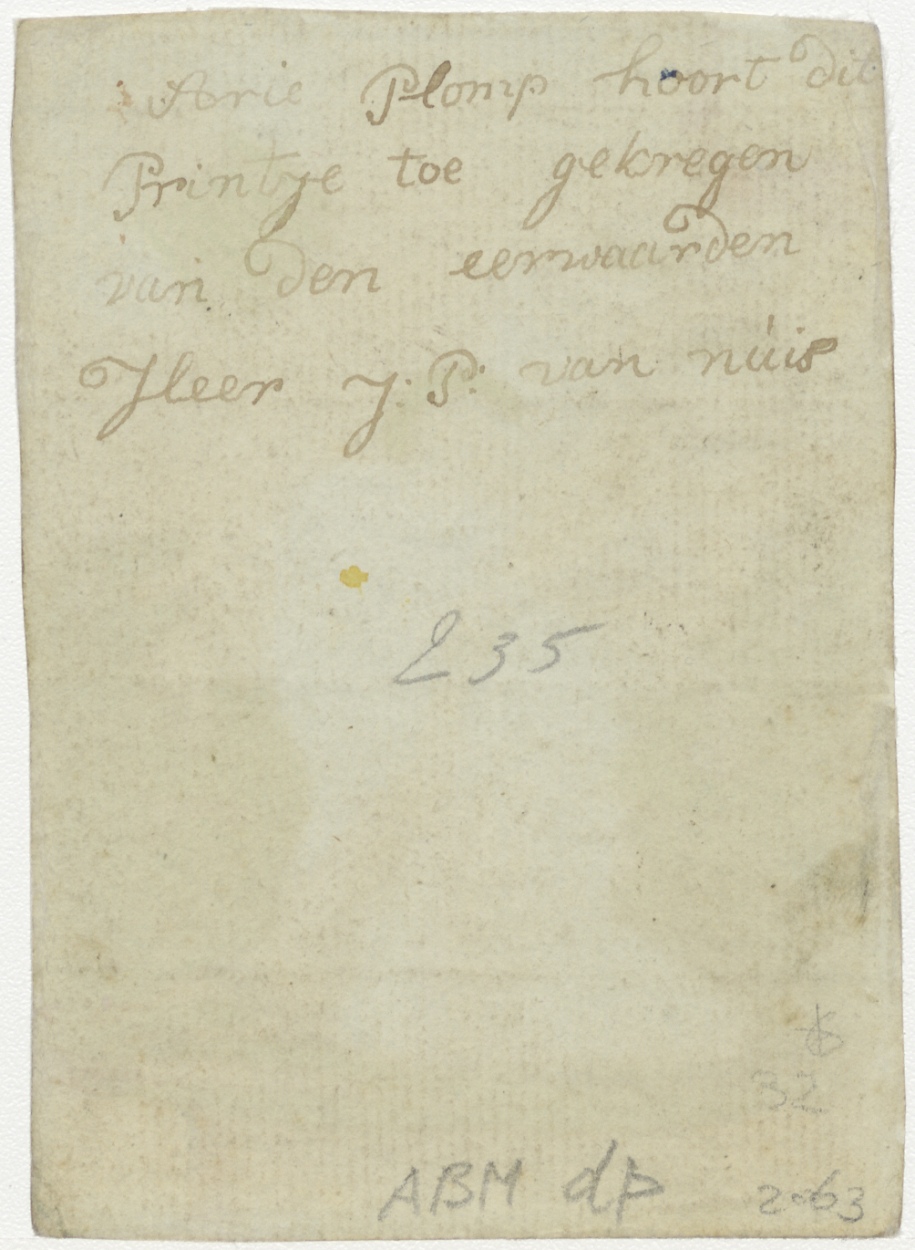 Arie Plomp hoort dit
Printje toe gekregen
van den eerwaarden
Heer J: P: van núis
E 35
32
ABM dp 2063